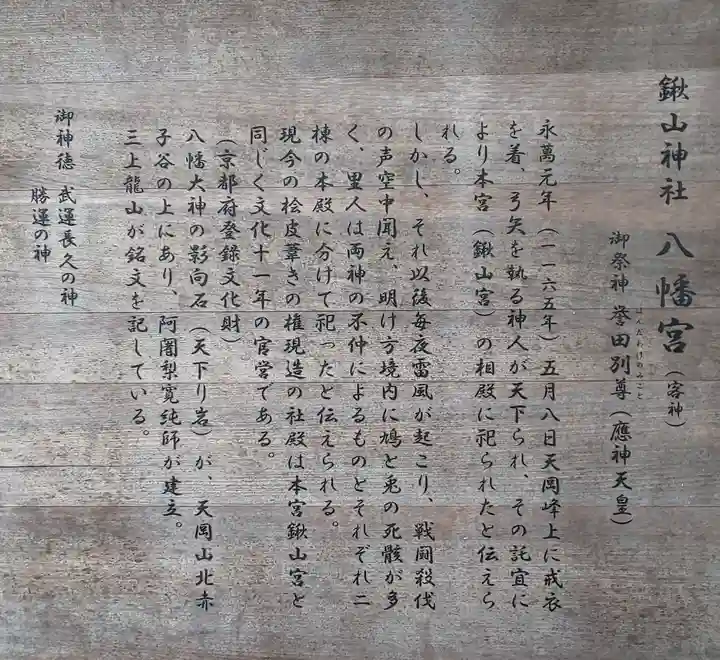 鍬山神社 八幡宮(客神)
御祭神 誉田別尊(應神天皇)
ほんだわけのみこと
永萬元年(一一六五年)五月八日天岡峰上に戒衣
を着、弓矢を執る神人が天下られ、その託宣に
より本宮(鍬山宮)の相殿に祀られたと伝えら
れる。
しかし、それ以後毎夜雷風が起こり、戦闘殺伐
の声空中聞え、明け方境内に鳩と兎の死骸が多
く、里人は両神の不仲によるものとそれぞれ二
棟の本殿に分けて祀ったと伝えられる。
現今の桧皮葺きの権現造の社殿は本宮鍬山宮と
同じく文化十一年の官営である。
(京都府登録文化財)
八幡大神の影向石(天下り岩)が、天岡山北赤
子谷の上にあり、阿闍梨寛純師が建立。
三上龍山が銘文を記している。
御神徳 武運長久の神
勝運の神